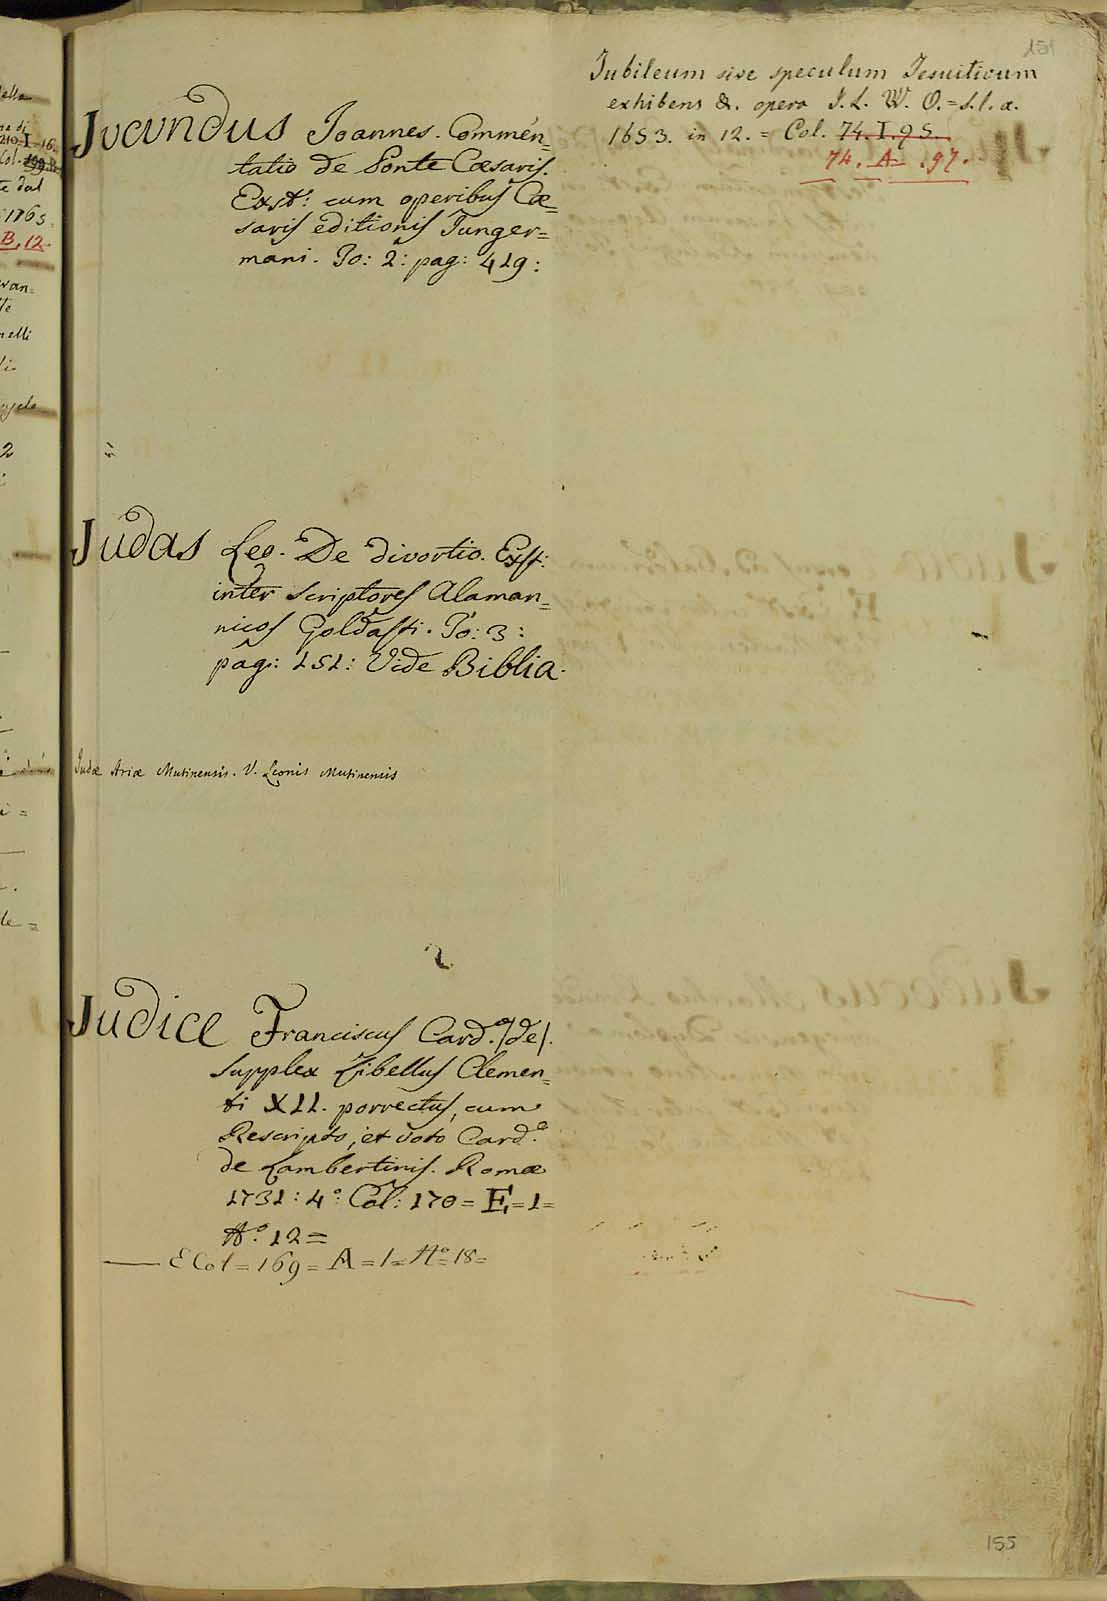 151
Jucundus Joannes. Commen=
tatio de Ponte Cæsaris.
Exst: cum operibus Cæ=
saris editionis Junger=
mani. To: 2: pag: 419:
Jubileum sive speculum Jesuiticum
exhibens &. opera I. L. W. O. = s. l. a.
1653. in 12. = Col. 74. I. 95.
74. A. 97.
Judas Leo. De divortio. Exst:
inter scriptores Alaman=
nicos Goldasti. To: 3:
pag: 151: Vide Biblia.
Judæ Ariæ Mutinensis. V. Leonis Mutinensis
Judice Franciscus Card. /de/.
supplex libellus Clemen=
ti XII. porrectus, cum
Rescripto, et voto Card.
de Lambertinis. Romæ
1731: 4º: Col: 170 = E = 1 =
Nº. 12 =
— E Col = 169 = A = 1 = Nº = 18 =
155